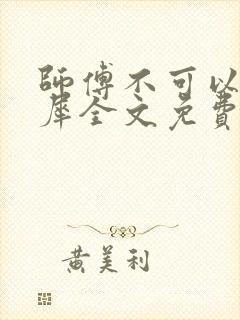 師傅不可以
犀全文免費
黃美利